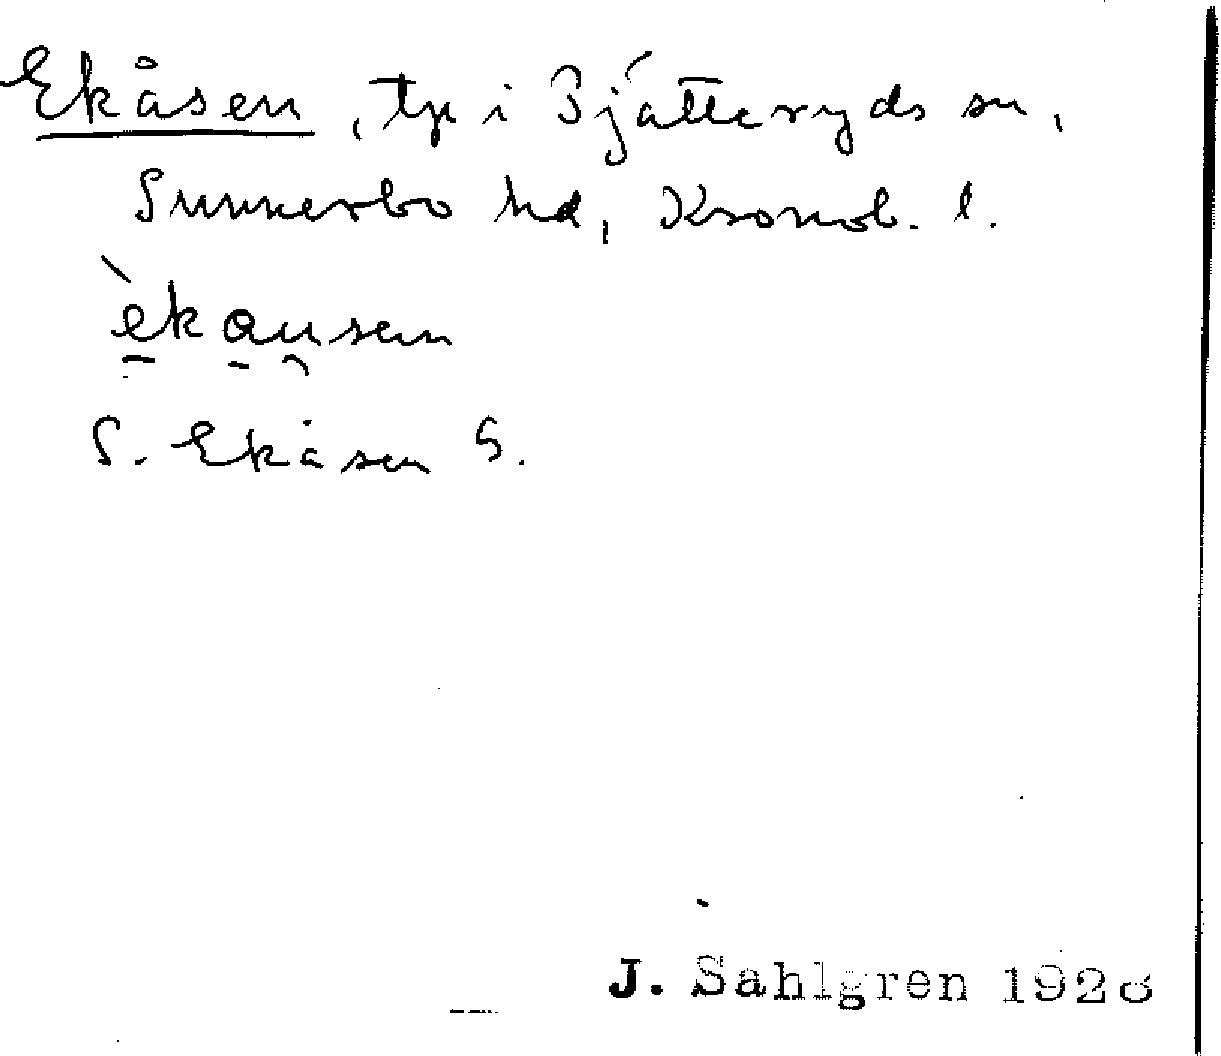 Ekåsen, tp i Pjätteryds sn,
Sunnerbo hd, Kronob. l.
èkausen
S. Ekåsen S.
J. Sahlgren 192